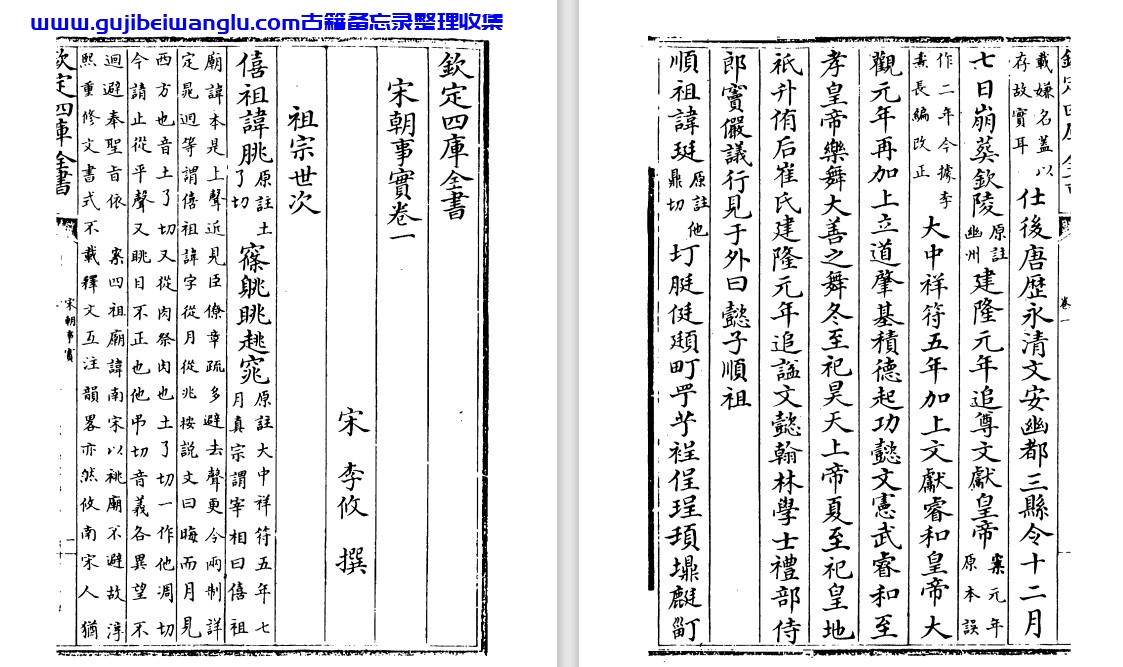 www.gujibeiwanglu.com古籍备忘录整理收集
欽定四庫全書
宋朝事實卷一
宋 李攸 撰
祖宗世次
僖祖諱朓原註土了切 眺趒窕原註大中祥符五年七月真宗謂宰相曰僖祖
廟諱本是上聲近見臣僚章疏多避去聲更令兩制詳
定晁迥等謂僖祖諱字從月從兆按說文曰晦而月見
西方也音土了切又從肉祭肉也土了切一作他凋切
今請止從平聲又眺目不正也他弔切音義各異望不
迴避奉聖旨依 案四祖廟諱南宋以祧廟不避故淳
熙重修文書式不載釋文互注韻畧亦然攸南宋人猶
欽定四庫全書 宋朝事實
欽定四庫全書 卷一
載嫌名蓋以存故實耳 仕後唐歷永清文安幽都三縣令十二月
七日崩葬欽陵原註幽州建隆元年追尊文獻皇帝案元年原本誤
作二年今據李燾長編改正 大中祥符五年加上文獻睿和皇帝大
觀元年再加上立道肇基積德起功懿文憲武睿和至
孝皇帝樂舞大善之舞冬至祀昊天上帝夏至祀皇地
祇升侑后崔氏建隆元年追謚文懿翰林學士禮部侍
郎竇儼議行見于外曰懿子順祖
順祖諱珽原註他鼎切圢脡侹頲町甼艼裎侱珵